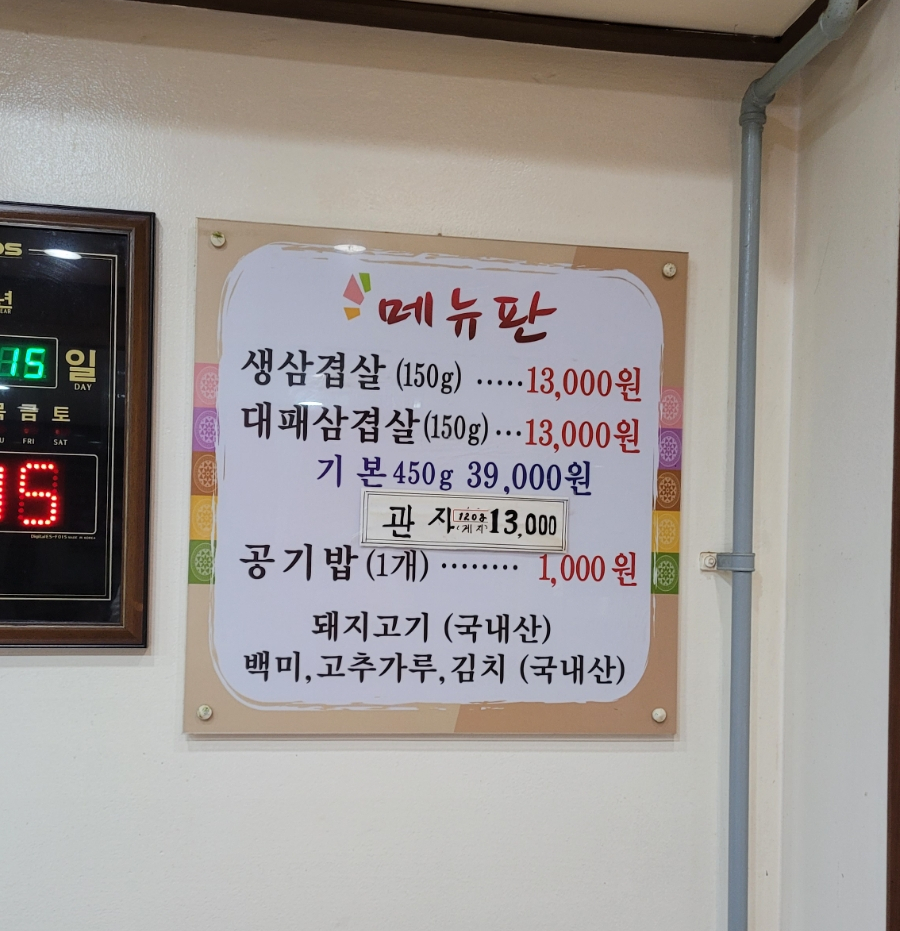 메뉴판
생삼겹살 (150g) ·····13,000원
대패삼겹살(150g)···13,000원
기 본 450g 39,000원
관 자 120g 13,000
공기밥 (1개) ········ 1,000원
돼지고기 (국내산)
백미,고추가루,김치 (국내산)
년
15 일
DAY
금 토
FRI SAT